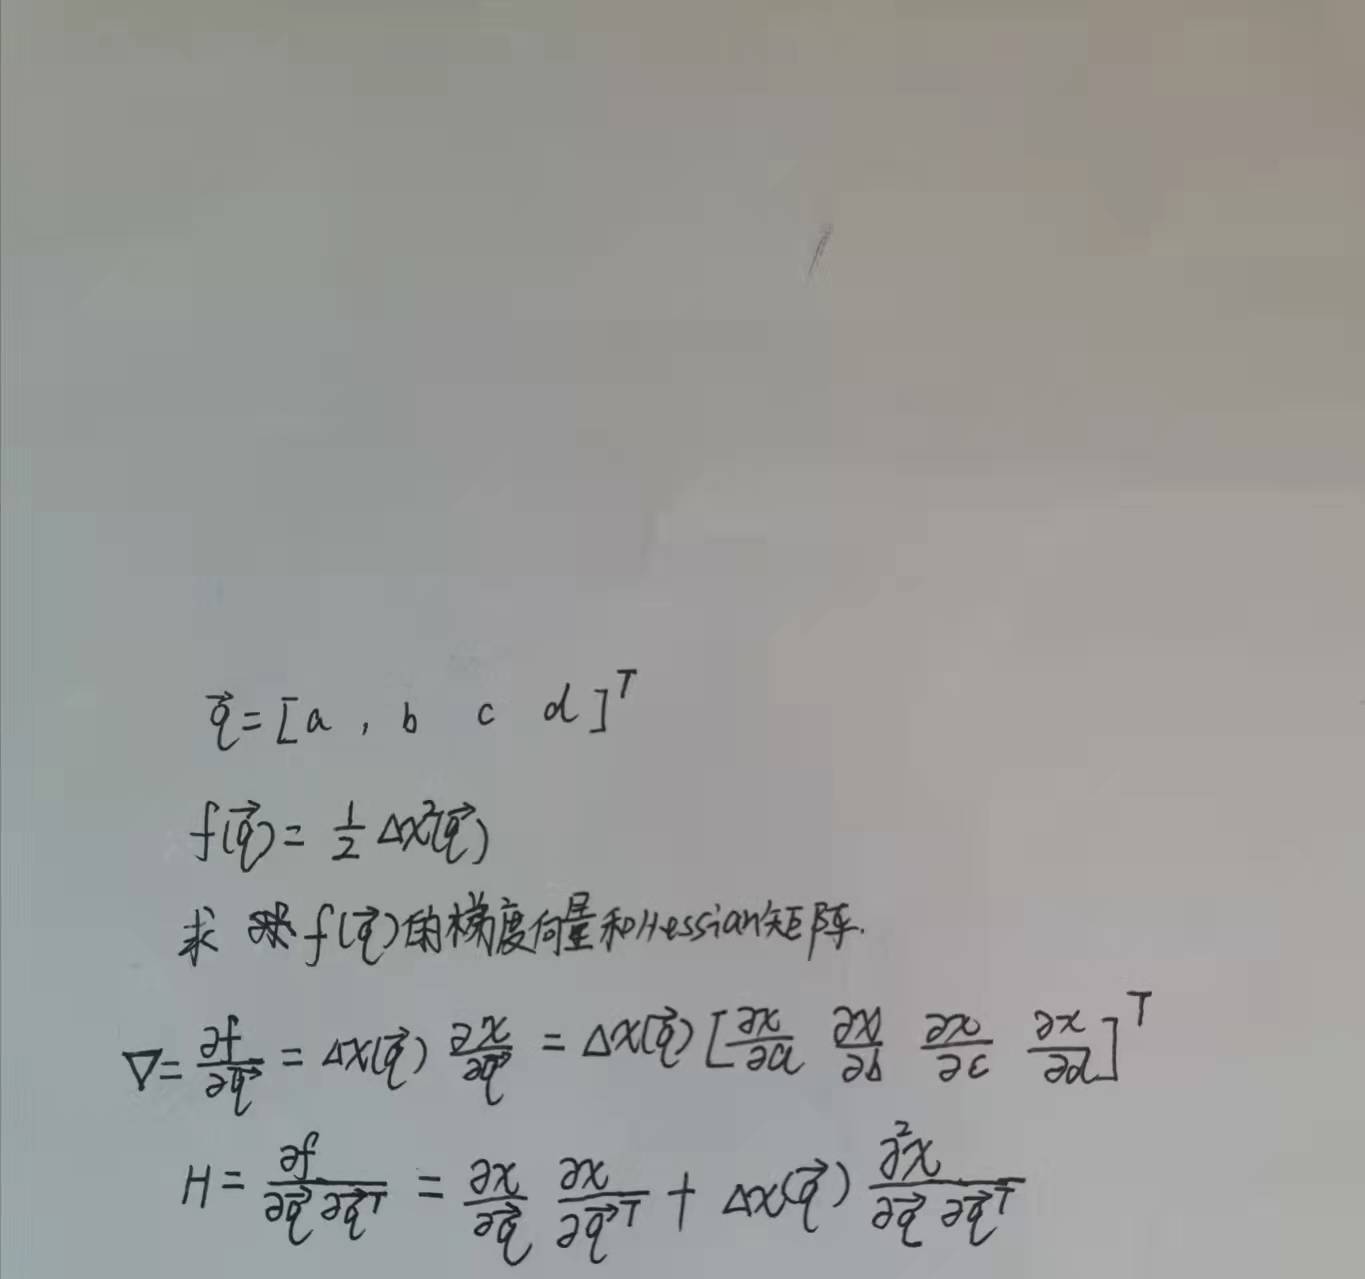 q⃗ = [a , b c d]ᵀ
f(q⃗) = 1/2 Δx²(q⃗)
求 f(q⃗)的梯度向量和Hessian矩阵.
∇ = ∂f/∂q⃗ = Δx(q⃗) ∂x/∂q⃗ = Δx(q⃗) [∂x/∂a ∂x/∂b ∂x/∂c ∂x/∂d]ᵀ
H = ∂f/∂q⃗∂q⃗ᵀ = ∂x/∂q⃗ ∂x/∂q⃗ᵀ + Δx(q⃗) ∂²x/∂q⃗∂q⃗ᵀ